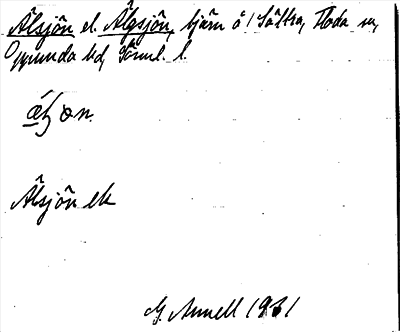 Älsjön el. Älgsjön, tjärn å Sältra, Floda sn,
Oppunda hd, Sörml. l.
Älsjön ek
G. Annell 1931